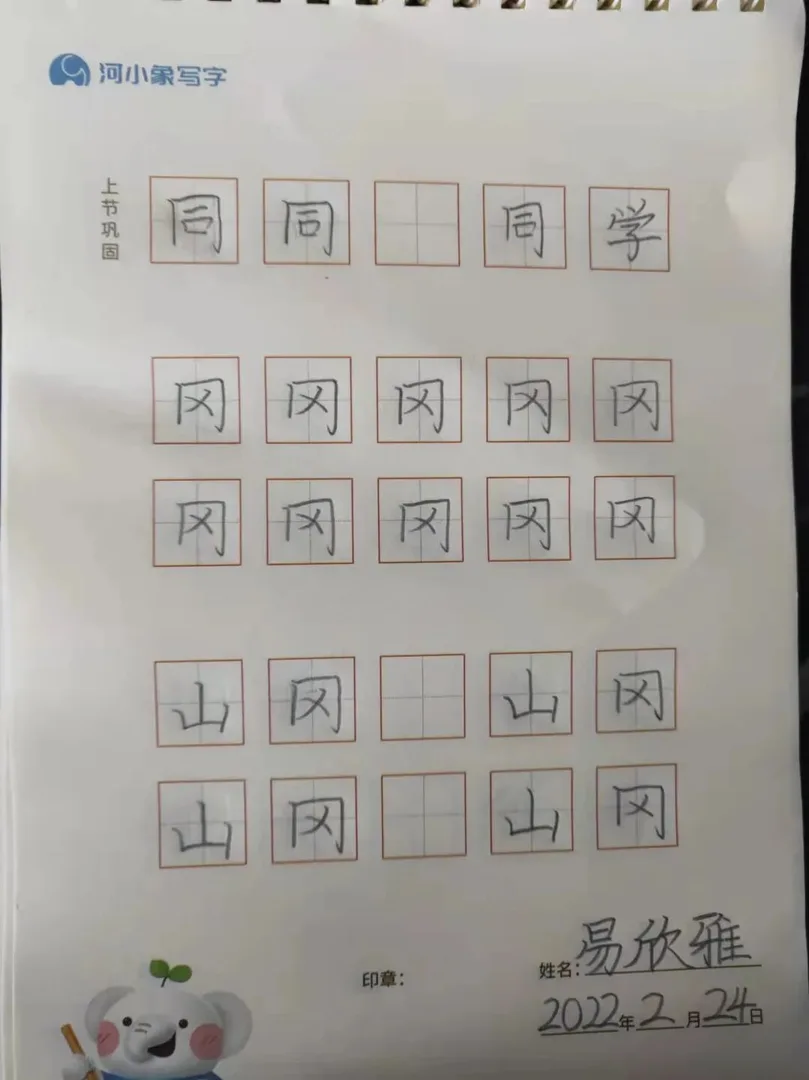 河小象写字
上节巩固
同 同 同 学
冈 冈 冈 冈 冈
冈 冈 冈 冈 冈
山 冈 山 冈
山 冈 山 冈
印章： 姓名：易欣雅
2022年2月24日